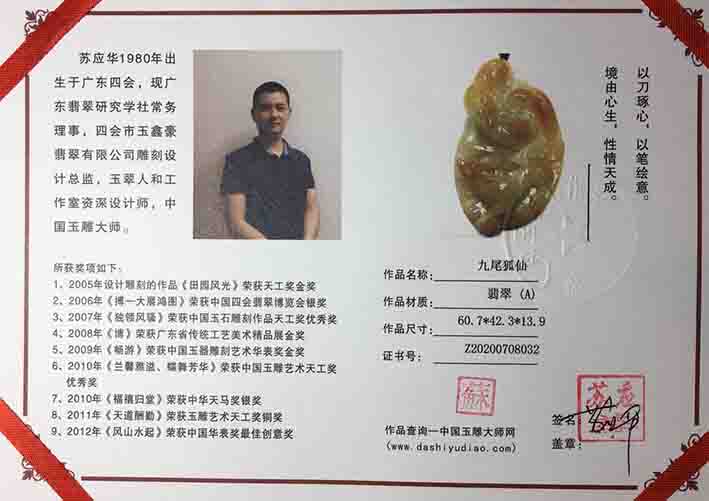 苏应华1980年出
生于广东四会，现广
东翡翠研究学社常务
理事，四会市玉鑫豪
翡翠有限公司雕刻设
计总监，玉翠人和工
作室资深设计师，中
国玉雕大师。
所获奖项如下：
1、2005年设计雕刻的作品《田园风光》荣获天工奖金奖
2、2006年《搏一大展鸿图》荣获中国四会翡翠博览会银奖
3、2007年《独领风骚》荣获中国玉石雕刻作品天工奖优秀奖
4、2008年《博》荣获广东省传统工艺美术精品展金奖
5、2009年《畅游》荣获中国玉器雕刻艺术华表奖金奖
6、2010年《兰馨雅滋、蝶舞芳华》荣获中国玉雕艺术天工奖
优秀奖
7、2010年《福禧归堂》荣获中华天马奖银奖
8、2011年《天道酬勤》荣获玉雕艺术天工奖铜奖
9、2012年《风山水起》荣获中国华表奖最佳创意奖
以刀琢心，以笔绘意。
境由心生，性情天成。
作品名称：九尾狐仙
作品材质：翡翠 (A)
作品尺寸：60.7*42.3*13.9
证书号：Z20200708032
作品查询一中国玉雕大师网
(www.dashiyudiao.com)
签名：
盖章：